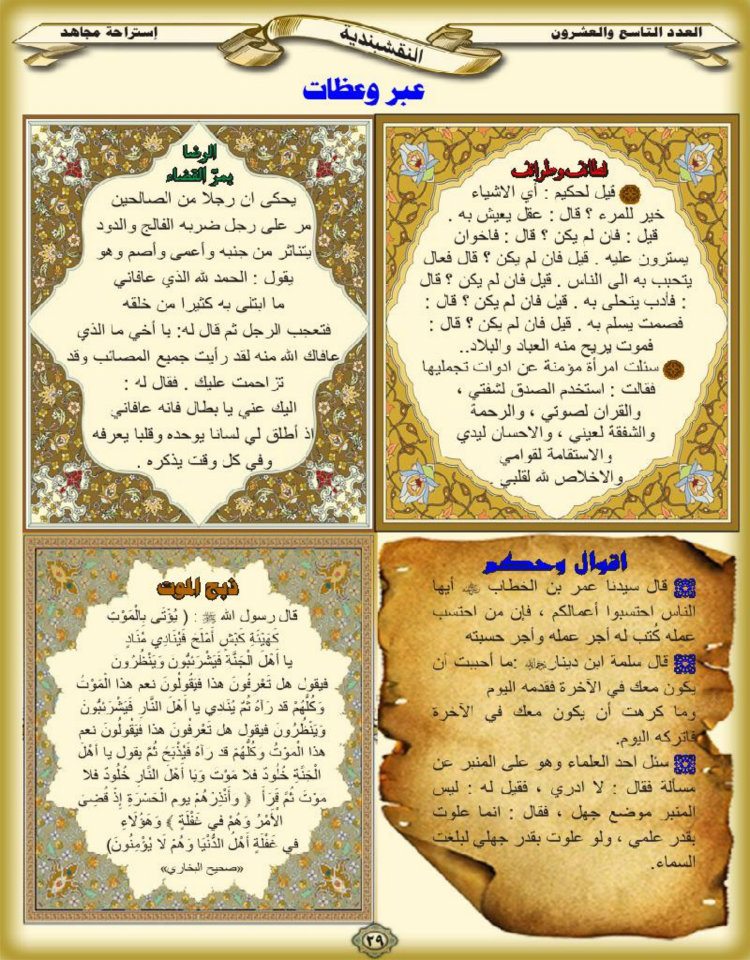 العدد التاسع والعشرون
النقشبندية
إستراحة مجاهد
عبر وعظات
لطائف وطرائف
قيل لحكيم : أي الاشياء
خير للمرء ؟ قال : عقل يعيش به .
قيل : فان لم يكن ؟ قال : فاخوان
يسترون عليه . قيل فان لم يكن ؟ قال فعال
يتحبب به الى الناس . قيل فان لم يكن ؟ قال
: فأدب يتحلى به . قيل فان لم يكن ؟ قال :
فصمت يسلم به . قيل فان لم يكن ؟ قال :
فموت يريح منه العباد والبلاد..
سئلت امرأة مؤمنة عن ادوات تجمليها
فقالت : استخدم الصدق لشفتي ،
والقران لصوتي ، والرحمة
والشفقة لعيني ، والاحسان ليدي
والاستقامة لقوامي
والاخلاص لله لقلبي .
الرضا
بمرّ القضاء
يحكى ان رجلا من الصالحين
مر على رجل ضربه الفالج والدود
يتناثر من جنبه وأعمى وأصم وهو
يقول : الحمد لله الذي عافاني
ما ابتلى به كثيرا من خلقه
فتعجب الرجل ثم قال له: يا أخي ما الذي
عافاك الله منه لقد رأيت جميع المصائب وقد
تزاحمت عليك . فقال له :
اليك عني يا بطال فانه عافاني
اذ أطلق لي لسانا يوحده وقلبا يعرفه
وفي كل وقت يذكره .
اقوال وحكم
قال سيدنا عمر بن الخطاب ﷺ أيها
الناس احتسبوا أعمالكم ، فإن من احتسب
عمله كُتب له أجر عمله وأجر حسبته
قال سلمة ابن دينار :ما أحببت أن
يكون معك في الآخرة فقدمه اليوم
وما كرهت أن يكون معك في الآخرة
فاتركه اليوم.
سئل احد العلماء وهو على المنبر عن
مسألة فقال : لا ادري ، فقيل له : ليس
المنبر موضع جهل ، فقال : انما علوت
بقدر علمي ، ولو علوت بقدر جهلي لبلغت
السماء.
ذبح الموت
قال رسول الله ﷺ : ( يُؤْتَى بِالْمَوْتِ
كَهَيْئَةِ كَبْشٍ أَمْلَحَ فَيُنَادِي مُنَادٍ
يا أَهْلَ الْجَنَّةِ فَيَشْرَئِبُّونَ وَيَنْظُرُونَ
فيقول هل تَعْرِفُونَ هذا فَيَقُولُونَ نعم هذا الْمَوْتُ
وَكُلُّهُمْ قد رَآهُ ثُمَّ يُنَادِي يا أَهْلَ النَّارِ فَيَشْرَئِبُّونَ
وَيَنْظُرُونَ فيقول هل تَعْرِفُونَ هذا فَيَقُولُونَ نعم
هذا الْمَوْتُ وَكُلُّهُمْ قد رَآهُ فَيُذْبَحُ ثُمَّ يقول يا أَهْلَ
الْجَنَّةِ خُلُودٌ فلا مَوْتَ وَيَا أَهْلَ النَّارِ خُلُودٌ فلا
موْتَ ثُمَّ قَرَأَ ﴿ وَأَنْذِرْهُمْ يوم الْحَسْرَةِ إِذْ قُضِيَ
الْأَمْرُ وَهُمْ في غَفْلَةٍ ﴾ وَهَؤُلَاءِ
في غَفْلَةٍ أَهْلُ الدُّنْيَا وَهُمْ لَا يُؤْمِنُونَ)
«صحيح البخاري»
٢٩